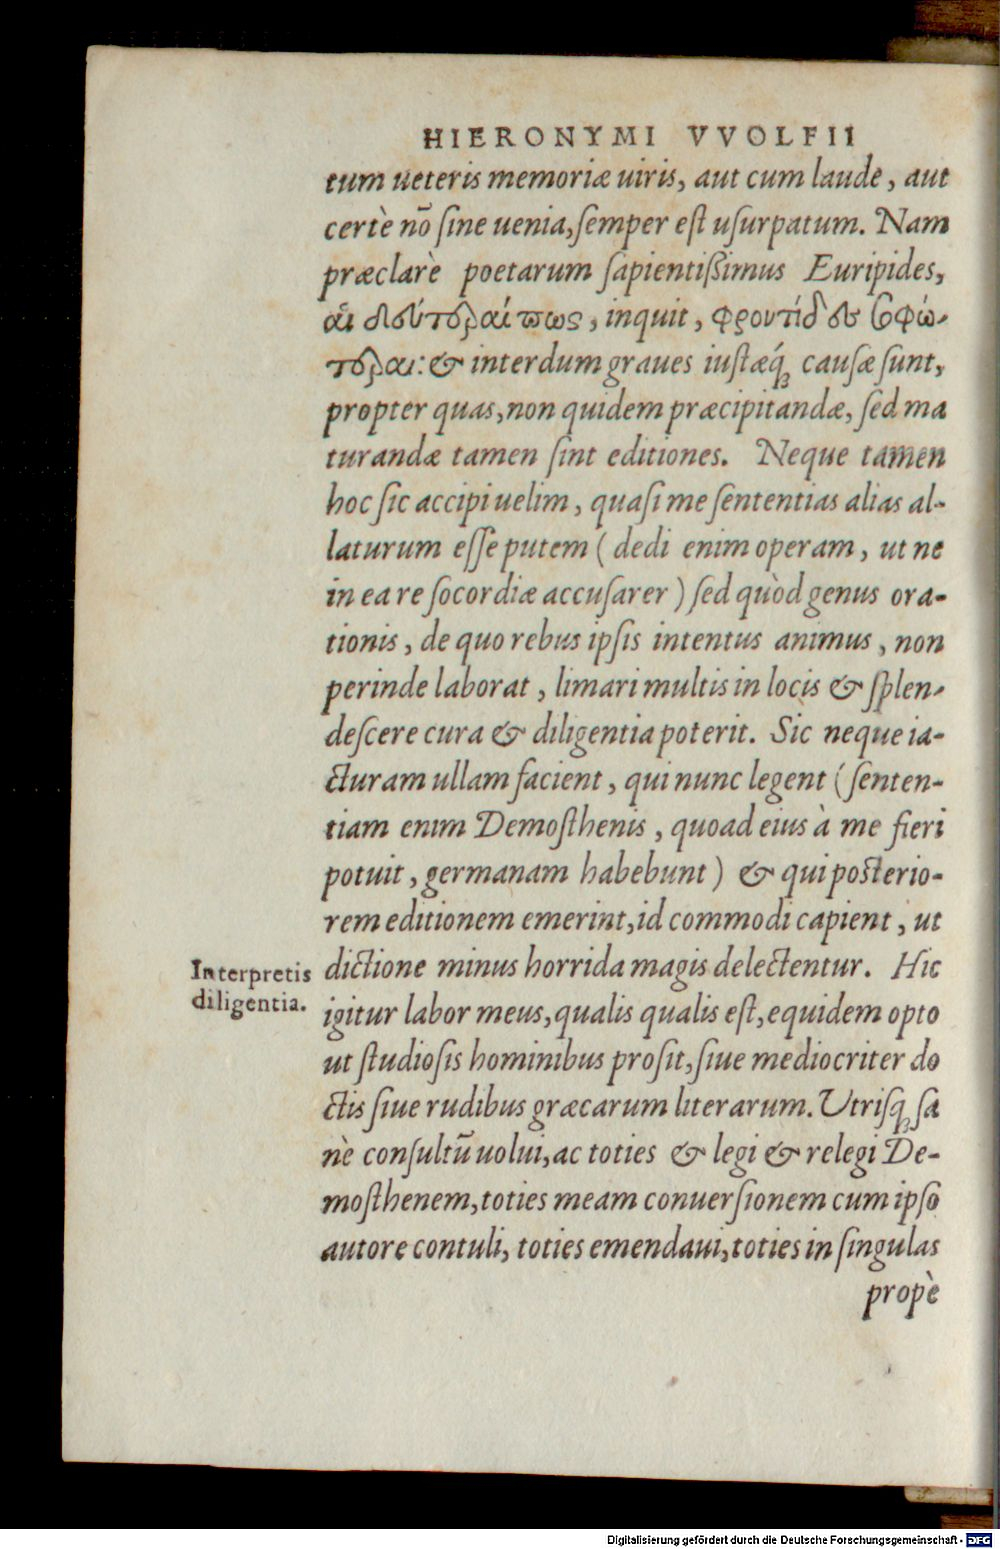 HIERONYMI VVOLFII
tum ueteris memoriæ uiris, aut cum laude, aut
certè nō sine uenia, semper est usurpatum. Nam
præclarè poetarum sapientißimus Euripides,
αἱ δευτέραί πως, inquit, φροντίδες σοφώ-
τεραι: & interdum graues iustæq́; causæ sunt,
propter quas, non quidem præcipitandæ, sed ma
turandæ tamen sint editiones. Neque tamen
hoc sic accipi uelim, quasi me sententias alias al-
laturum esse putem (dedi enim operam, ut ne
in ea re socordiæ accusarer) sed quòd genus ora-
tionis, de quo rebus ipsis intentus animus, non
perinde laborat, limari multis in locis & splen-
descere cura & diligentia poterit. Sic neque ia-
cturam ullam facient, qui nunc legent (senten-
tiam enim Demosthenis, quoad eius à me fieri
potuit, germanam habebunt) & qui posterio-
rem editionem emerint, id commodi capient, ut
Interpretis diligentia.
dictione minus horrida magis delectentur. Hic
igitur labor meus, qualis qualis est, equidem opto
ut studiosis hominibus prosit, siue mediocriter do
ctis siue rudibus græcarum literarum. Utrisq; sa
nè consultū uolui, ac toties & legi & relegi De-
mosthenem, toties meam conuersionem cum ipso
autore contuli, toties emendaui, toties in singulas
propè
Digitalisierung gefördert durch die Deutsche Forschungsgemeinschaft - DFG